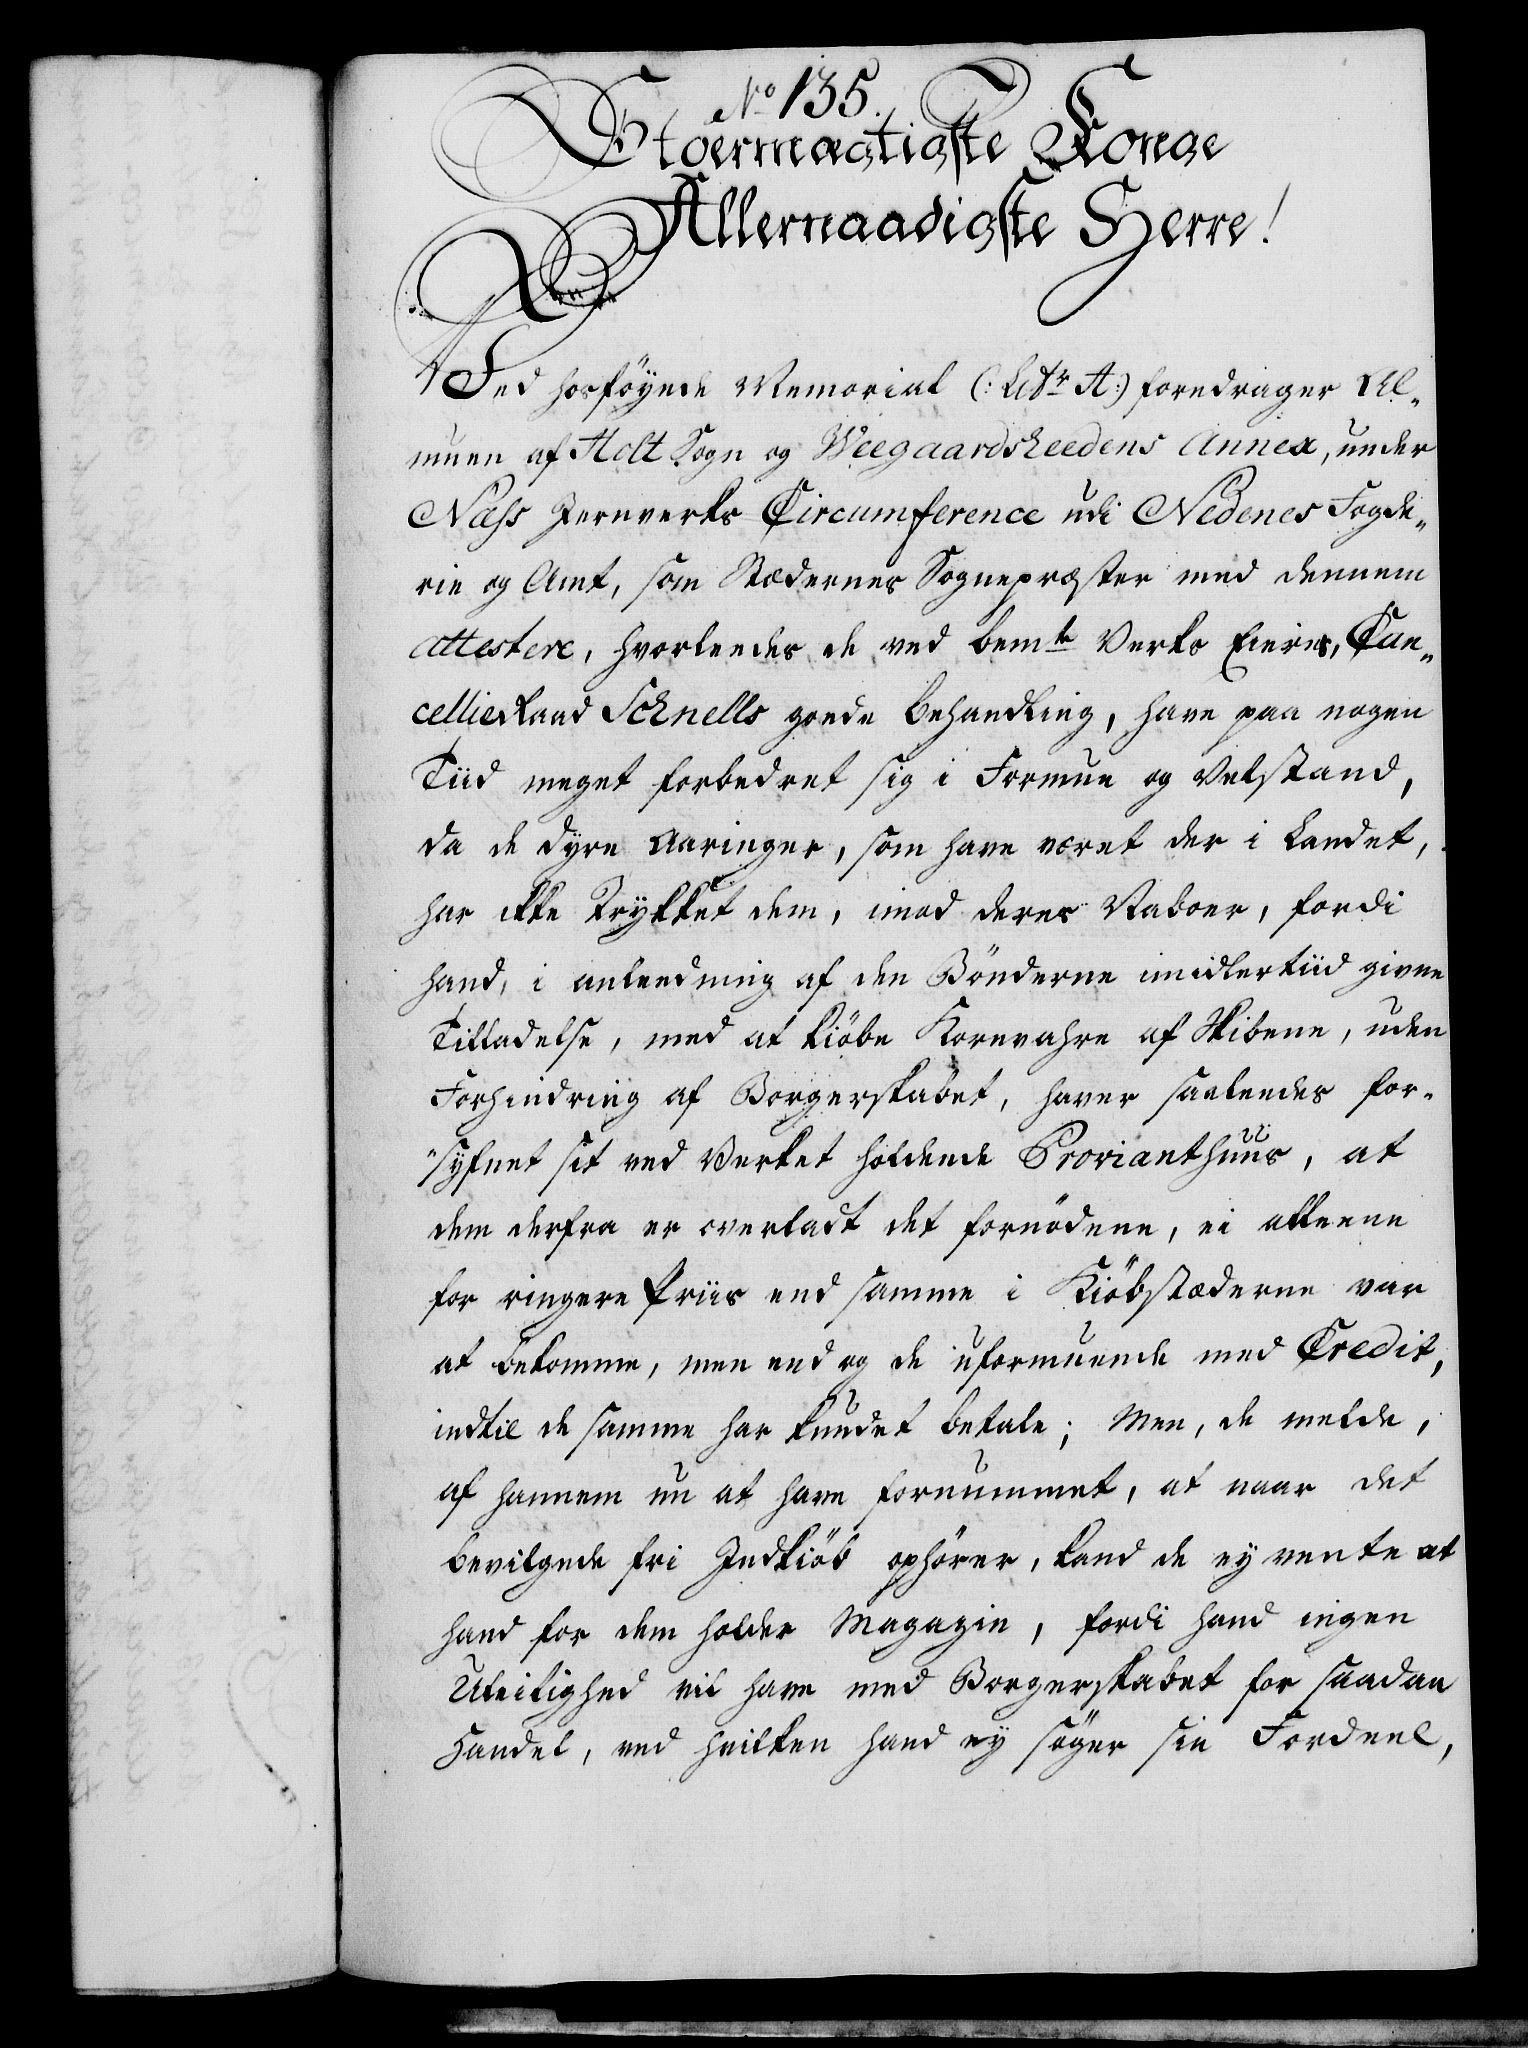 No 135.
Stoermægtigste Konge
Allernaadigste Herre!
Ved hosföyede Memorial (: Litr A:) foredrager Al-
muen af Holt Sogn og Weegaardsheedens Annex, under
Næss Jernverks Circumference udi Nedenes Fogde-
rie og Amt, som Stædernes Sognepræster med dennem
attestere, hvorleedes de ved bemte Verks Eiers, Can-
cellieRaad Schnells goede Behandling, have paa nogen
Tiid meget forbedret sig i Formue og Velstand,
da de dyre Aaringer, som have været der i Landet,
har ikke trykket dem, imod deres Naboer, fordi
hand, i anleedning af den Bönderne imidlertiid givne
Tilladelse, med at kiöbe Kornvahre af Skibene, uden
Forhindring af Borgerskabet, haver saaleedes for-
syfnet sit ved Verket holdende Provianthuus, at
dem derfra er overladt det fornödene, ei alleene
for ringere Priis end samme i Kiöbstæderne var
at bekomme, men end og de uformuende med Credit,
indtil de samme har kundet betale; Men, de melde,
af hannem nu at have fornummet, at naar det
bevilgede fri Indkiöb ophörer, kand de ey vente at
hand for dem holder Magazin, fordi hand ingen
Uleilighed vil have med Borgerskabet for saadan
Handel, ved hvilken hand ey söger sin Fordeel,